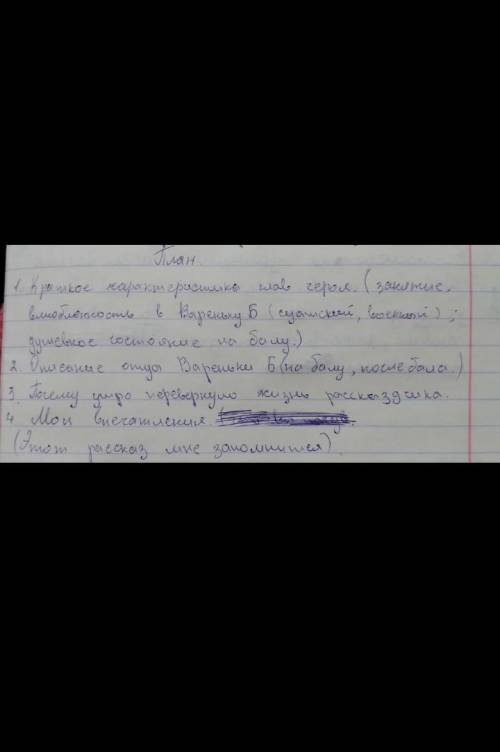 План.
1. Краткое характеристика глав героя. (занятие,
влюбленность в Вареньку Б (штатский, военный);
душевное состояние на балу.)
2. Описание отца Вареньки Б (на балу, после бала.)
3. Почему утро перевернуло жизнь рассказчика.
4 Мои впечатления.
(Этот рассказ мне запомнился).